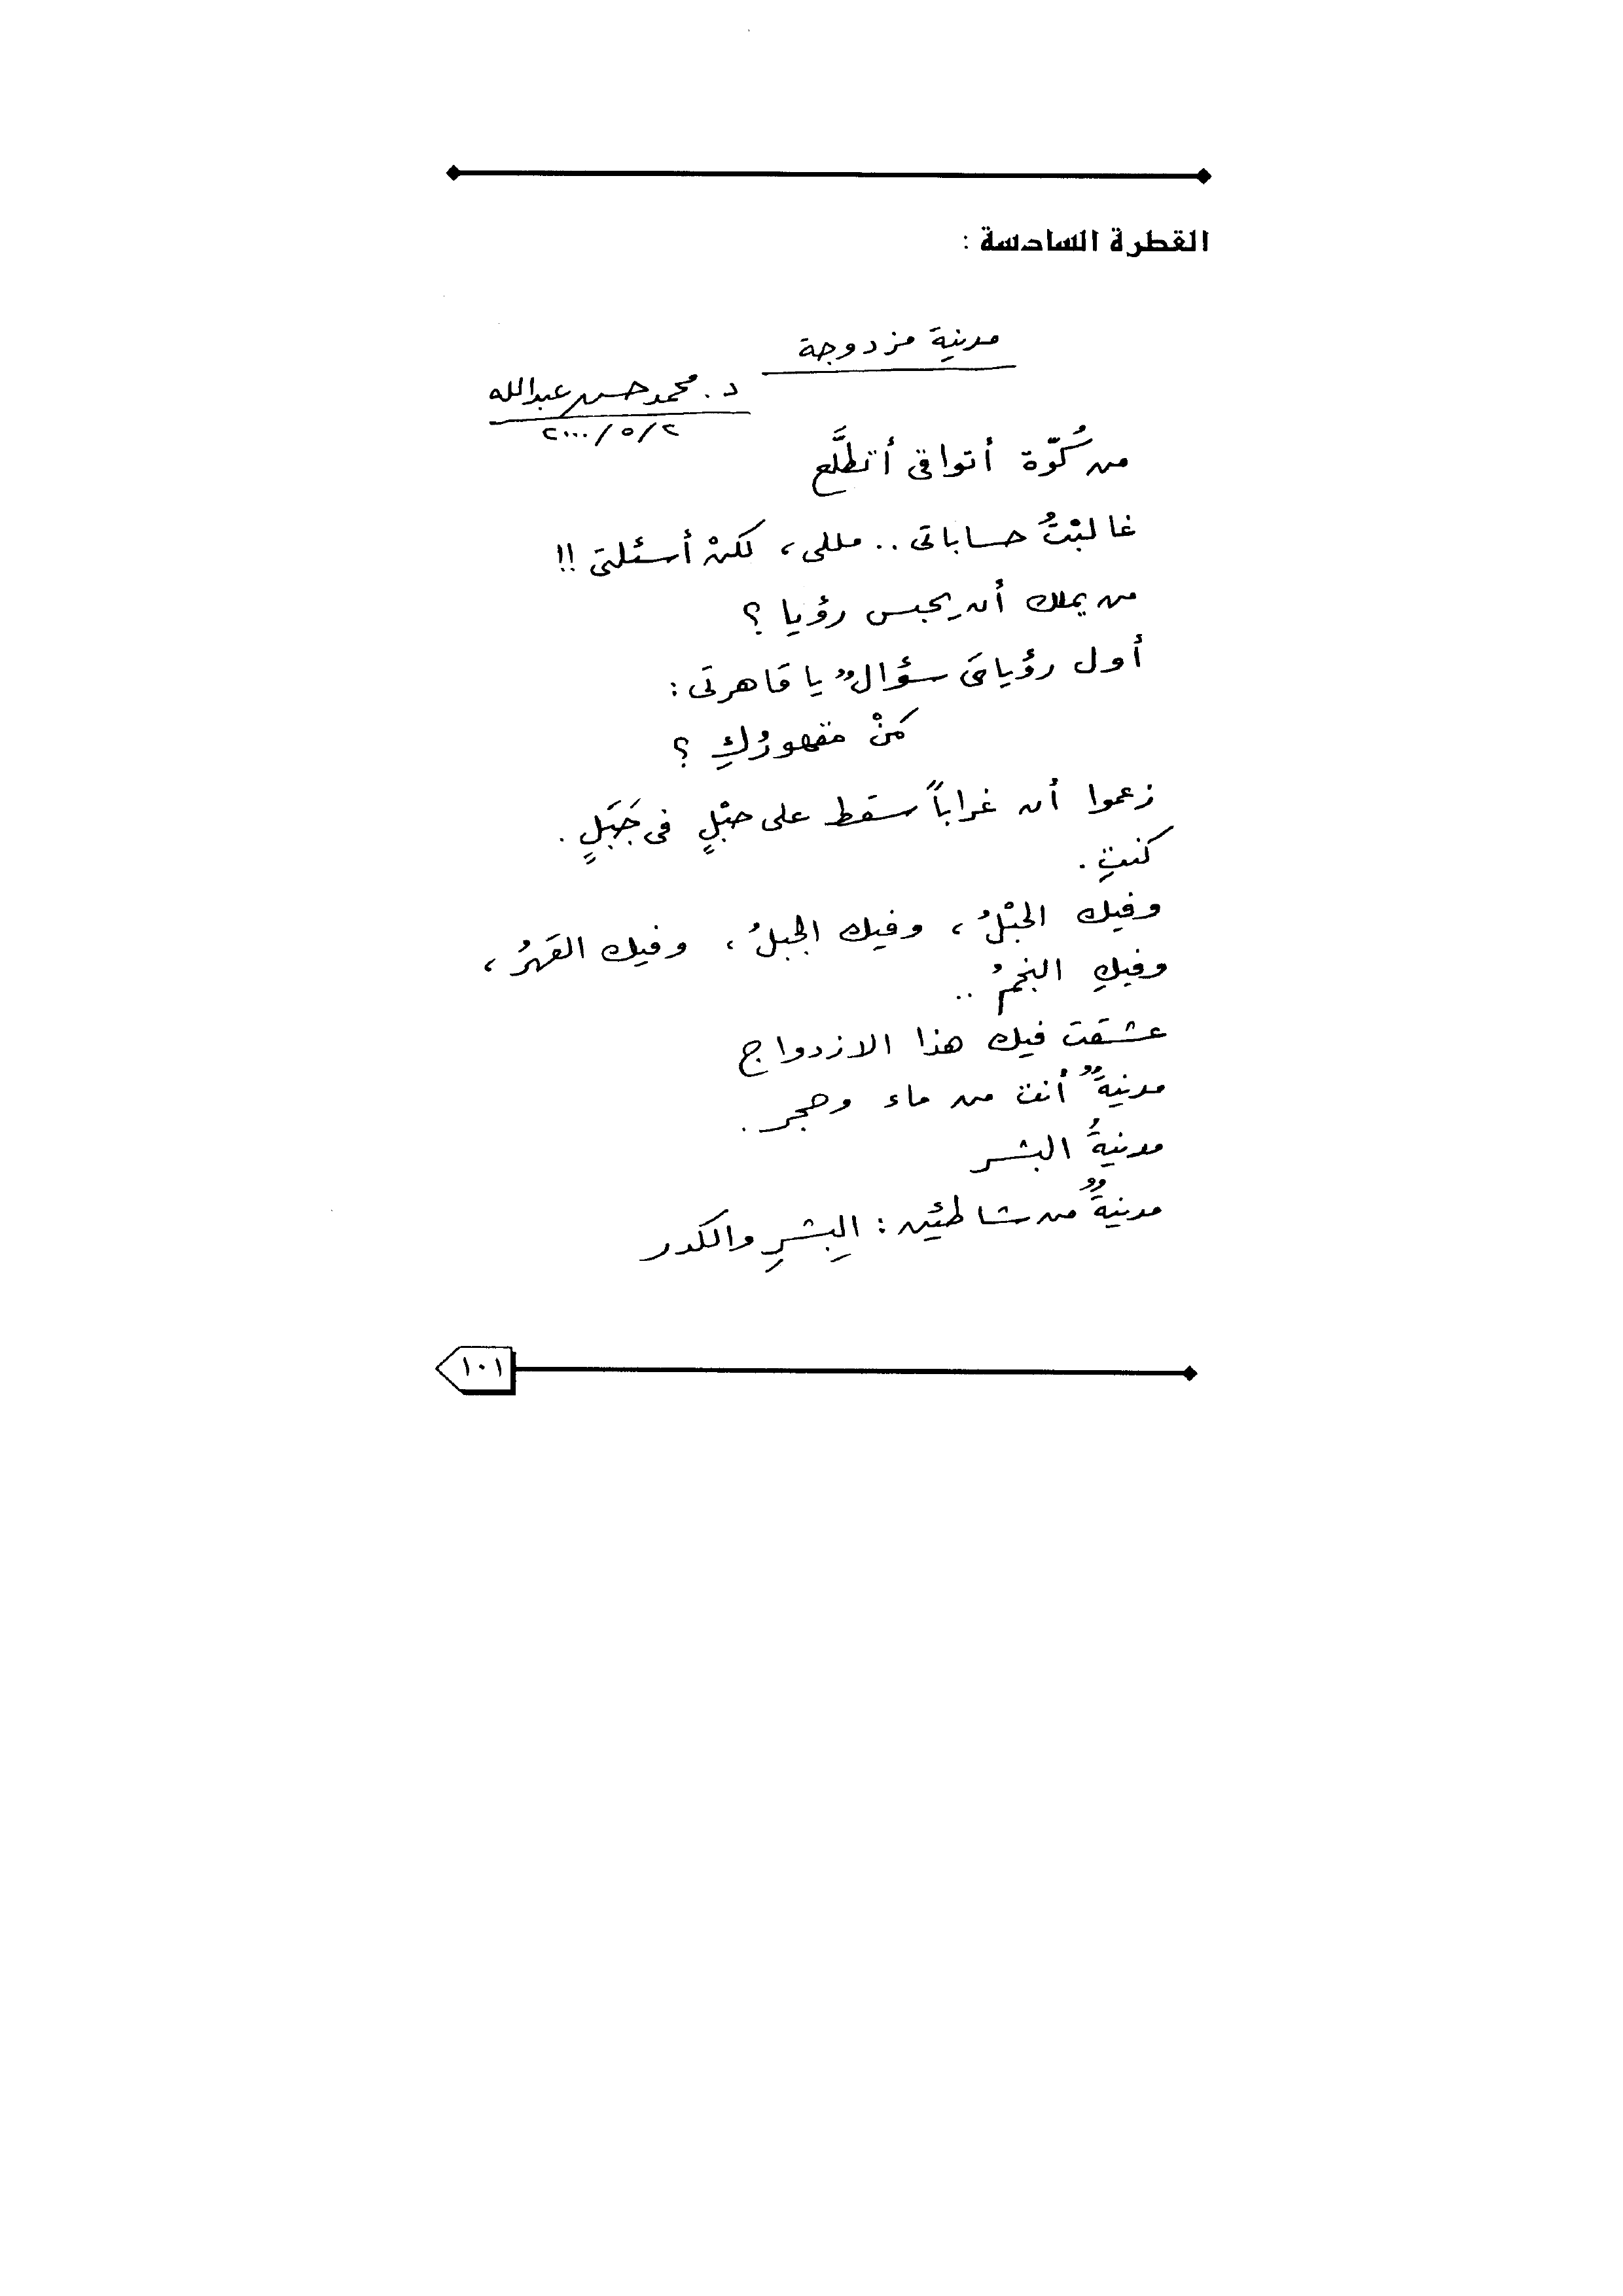 القطرة السادسة :
مدينة مزدوجة
د. محمد حسن عبدالله
٢/٥/٢٠٠٠
من كُوّة أتواقى أتطلَّع
غالبْتُ حساباتى .. مللى، لكنْ أسئلتى !!
من يملك أن يحبس رؤيا ؟
أول رؤياىَ سؤالٌ يا قاهرتى :
منْ مقهورُكِ ؟
زعموا أن غراباً سقط على حبْلٍ فى جَبَلٍ .
كنتِ .
وفيك الحبْلُ ، وفيك الجبلُ ، وفيك القهرُ ،
وفيكِ النجمُ ..
عشقت فيك هذا الازدواج
مدينةٌ أنت من ماء وحجر .
مدينةُ البشر
مدينةٌ من شاطئين : البِشرِ والكدر
١٠١